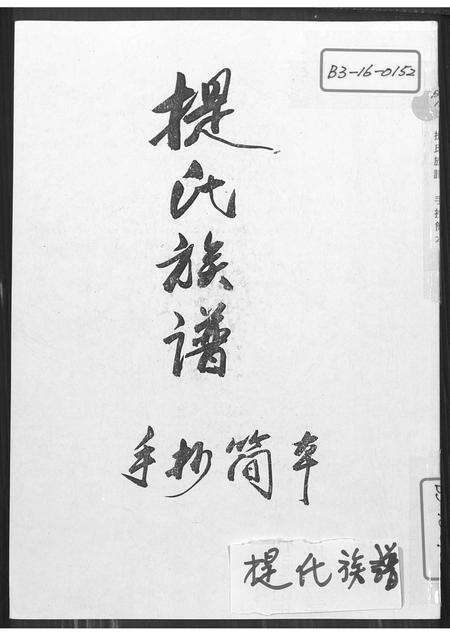 B3-16-0152
提氏族谱
手抄简本
提氏族譜